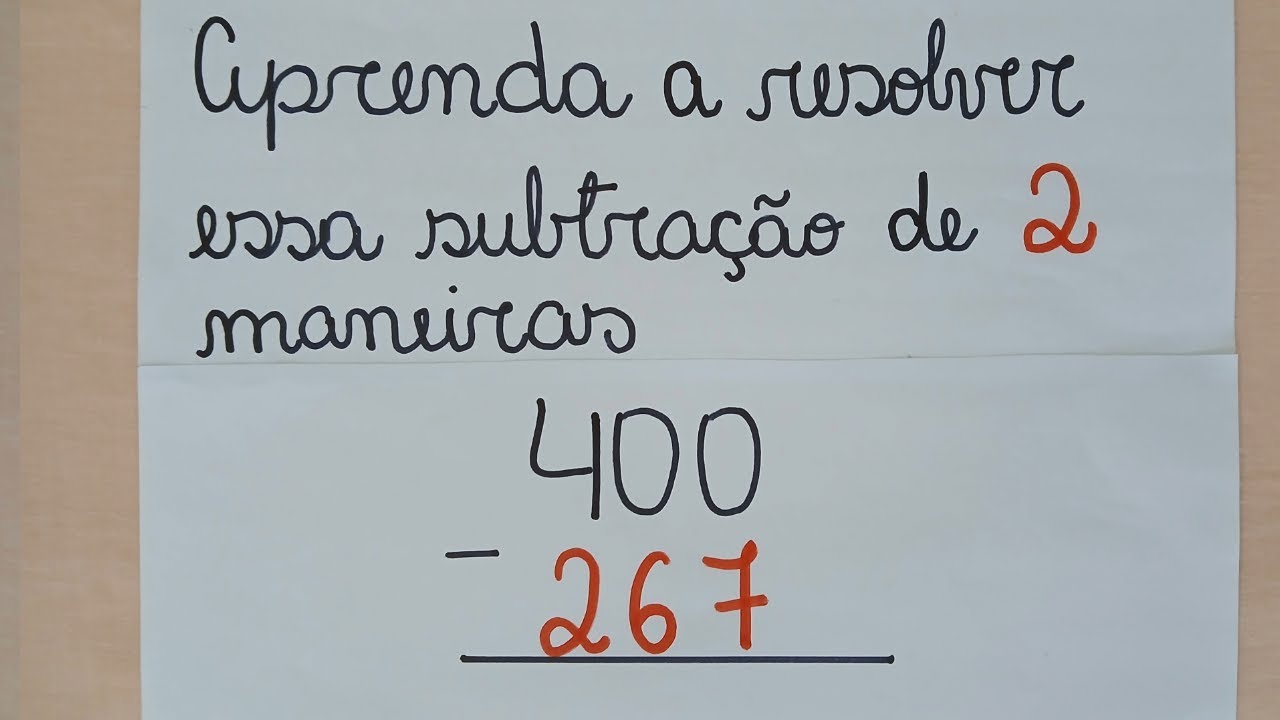 Aprenda a resolver
essa subtração de 2
maneiras
400
- 267